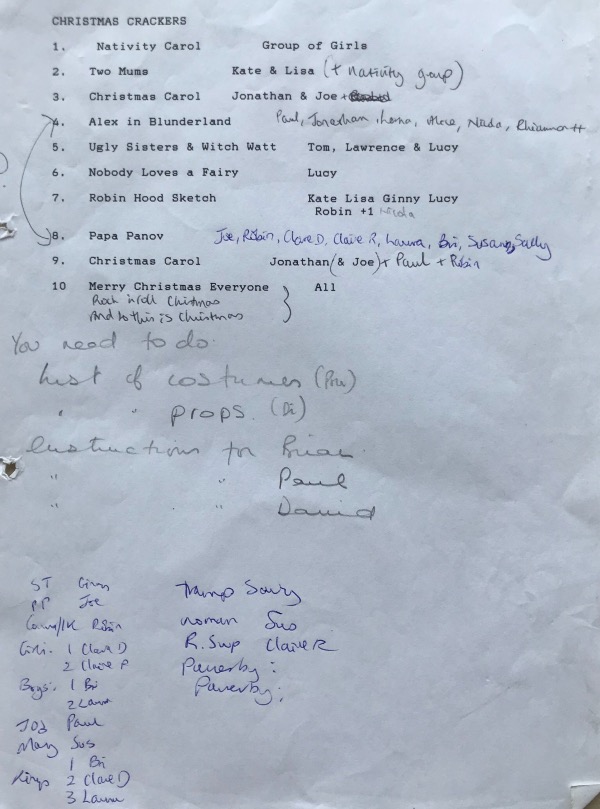 CHRISTMAS CRACKERS
1. Nativity Carol Group of Girls
2. Two Mums Kate & Lisa (+ nativity group)
3. Christmas Carol Jonathan & Joe +
4. Alex in Blunderland Paul, Jonathan, Lorna, Alex, Nilda, Rhiannott
5. Ugly Sisters & Witch Watt Tom, Lawrence & Lucy
6. Nobody Loves a Fairy Lucy
7. Robin Hood Sketch Kate Lisa Ginny Lucy
Robin +1 Nilda
8. Papa Panov Joe, Robin, Clare D, Claire R, Laura, Bri, Susang, Sally
9. Christmas Carol Jonathan (& Joe) + Paul + Robin
10 Merry Christmas Everyone All
Rock n roll Christmas
And so this is Christmas
You need to do.
List of costumes (Pru)
" " props. (Di)
Instructions for Brian
" " Paul
" " David
ST Ginny
PP Joe
Robin
Girls. 1 Clare D
2 Claire R
Boys. 1 Bri
2 Laura
Jos Paul
Mary Sus
1 Bri
Kings 2 Clare D
3 Laura
Tramp Sally
woman Sus
R. Swp Claire R
Passerby:
Passerby: